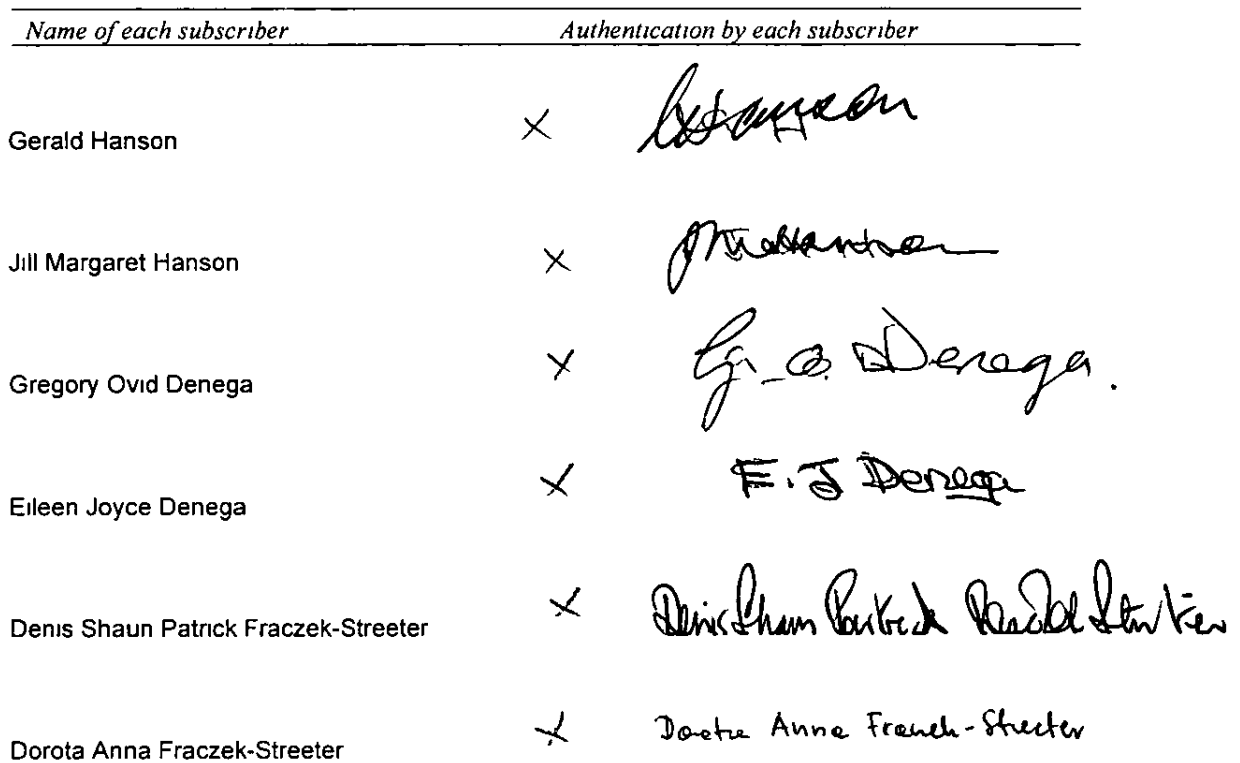 Name of each subscriber Authentication by each subscriber
Gerald Hanson X
Jill Margaret Hanson X
Gregory Ovid Denega X G. O. Denega.
Eileen Joyce Denega X E. J Denega
Denis Shaun Patrick Fraczek-Streeter X Denis Shaun Patrick
Dorota Anna Fraczek-Streeter X Anna